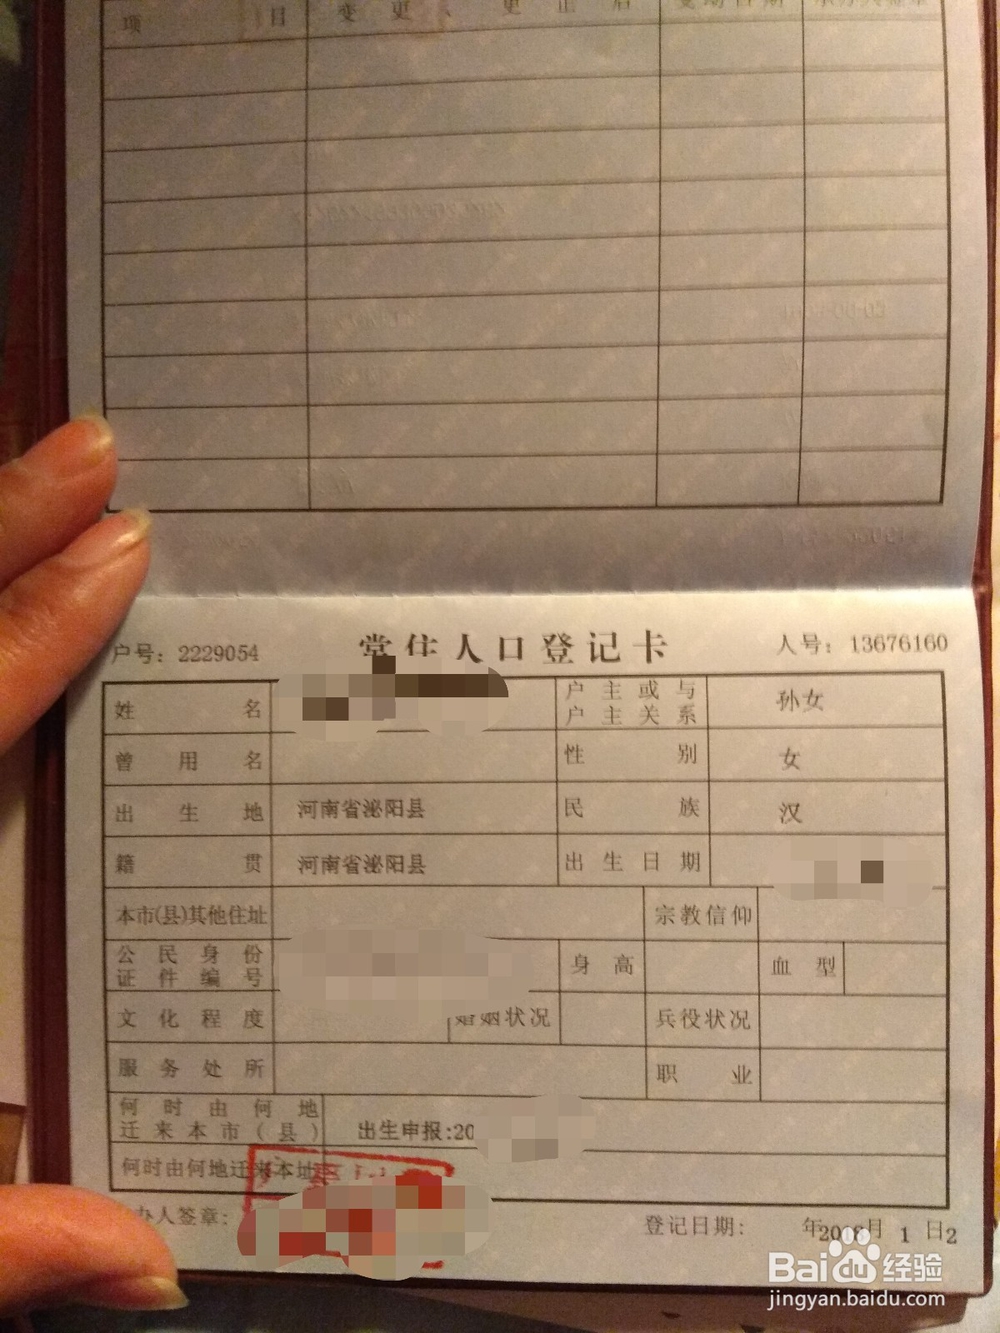 项 目 变 更 、 更 正 后 变动日期 承办人签章
户号：2229054 常住人口登记卡 人号：13676160
姓 名 户主或与户主关系 孙女
曾 用 名 性 别 女
出 生 地 河南省泌阳县 民 族 汉
籍 贯 河南省泌阳县 出生日期
本市(县)其他住址 宗教信仰
公民身份证件编号 身高 血型
文化程度 婚姻状况 兵役状况
服务处所 职业
何时由何地迁来本市(县) 出生申报:20
何时由何地迁来本址
办人签章: 登记日期: 年2018月 1 日2
Baidu经验
jingyan.baidu.com